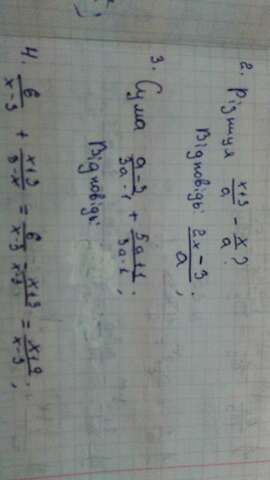 2. Різниця (x+3)/a - x/a?
Відповідь (2x-3)/a;
3. Сума (a-3)/(3a-1) + (5a+1)/(3a-1);
Відповідь
4. 6/(x-3) + (x+3)/(3-x) = 6/(x-3) - (x+3)/(x-3) = (x+9)/(x-3);